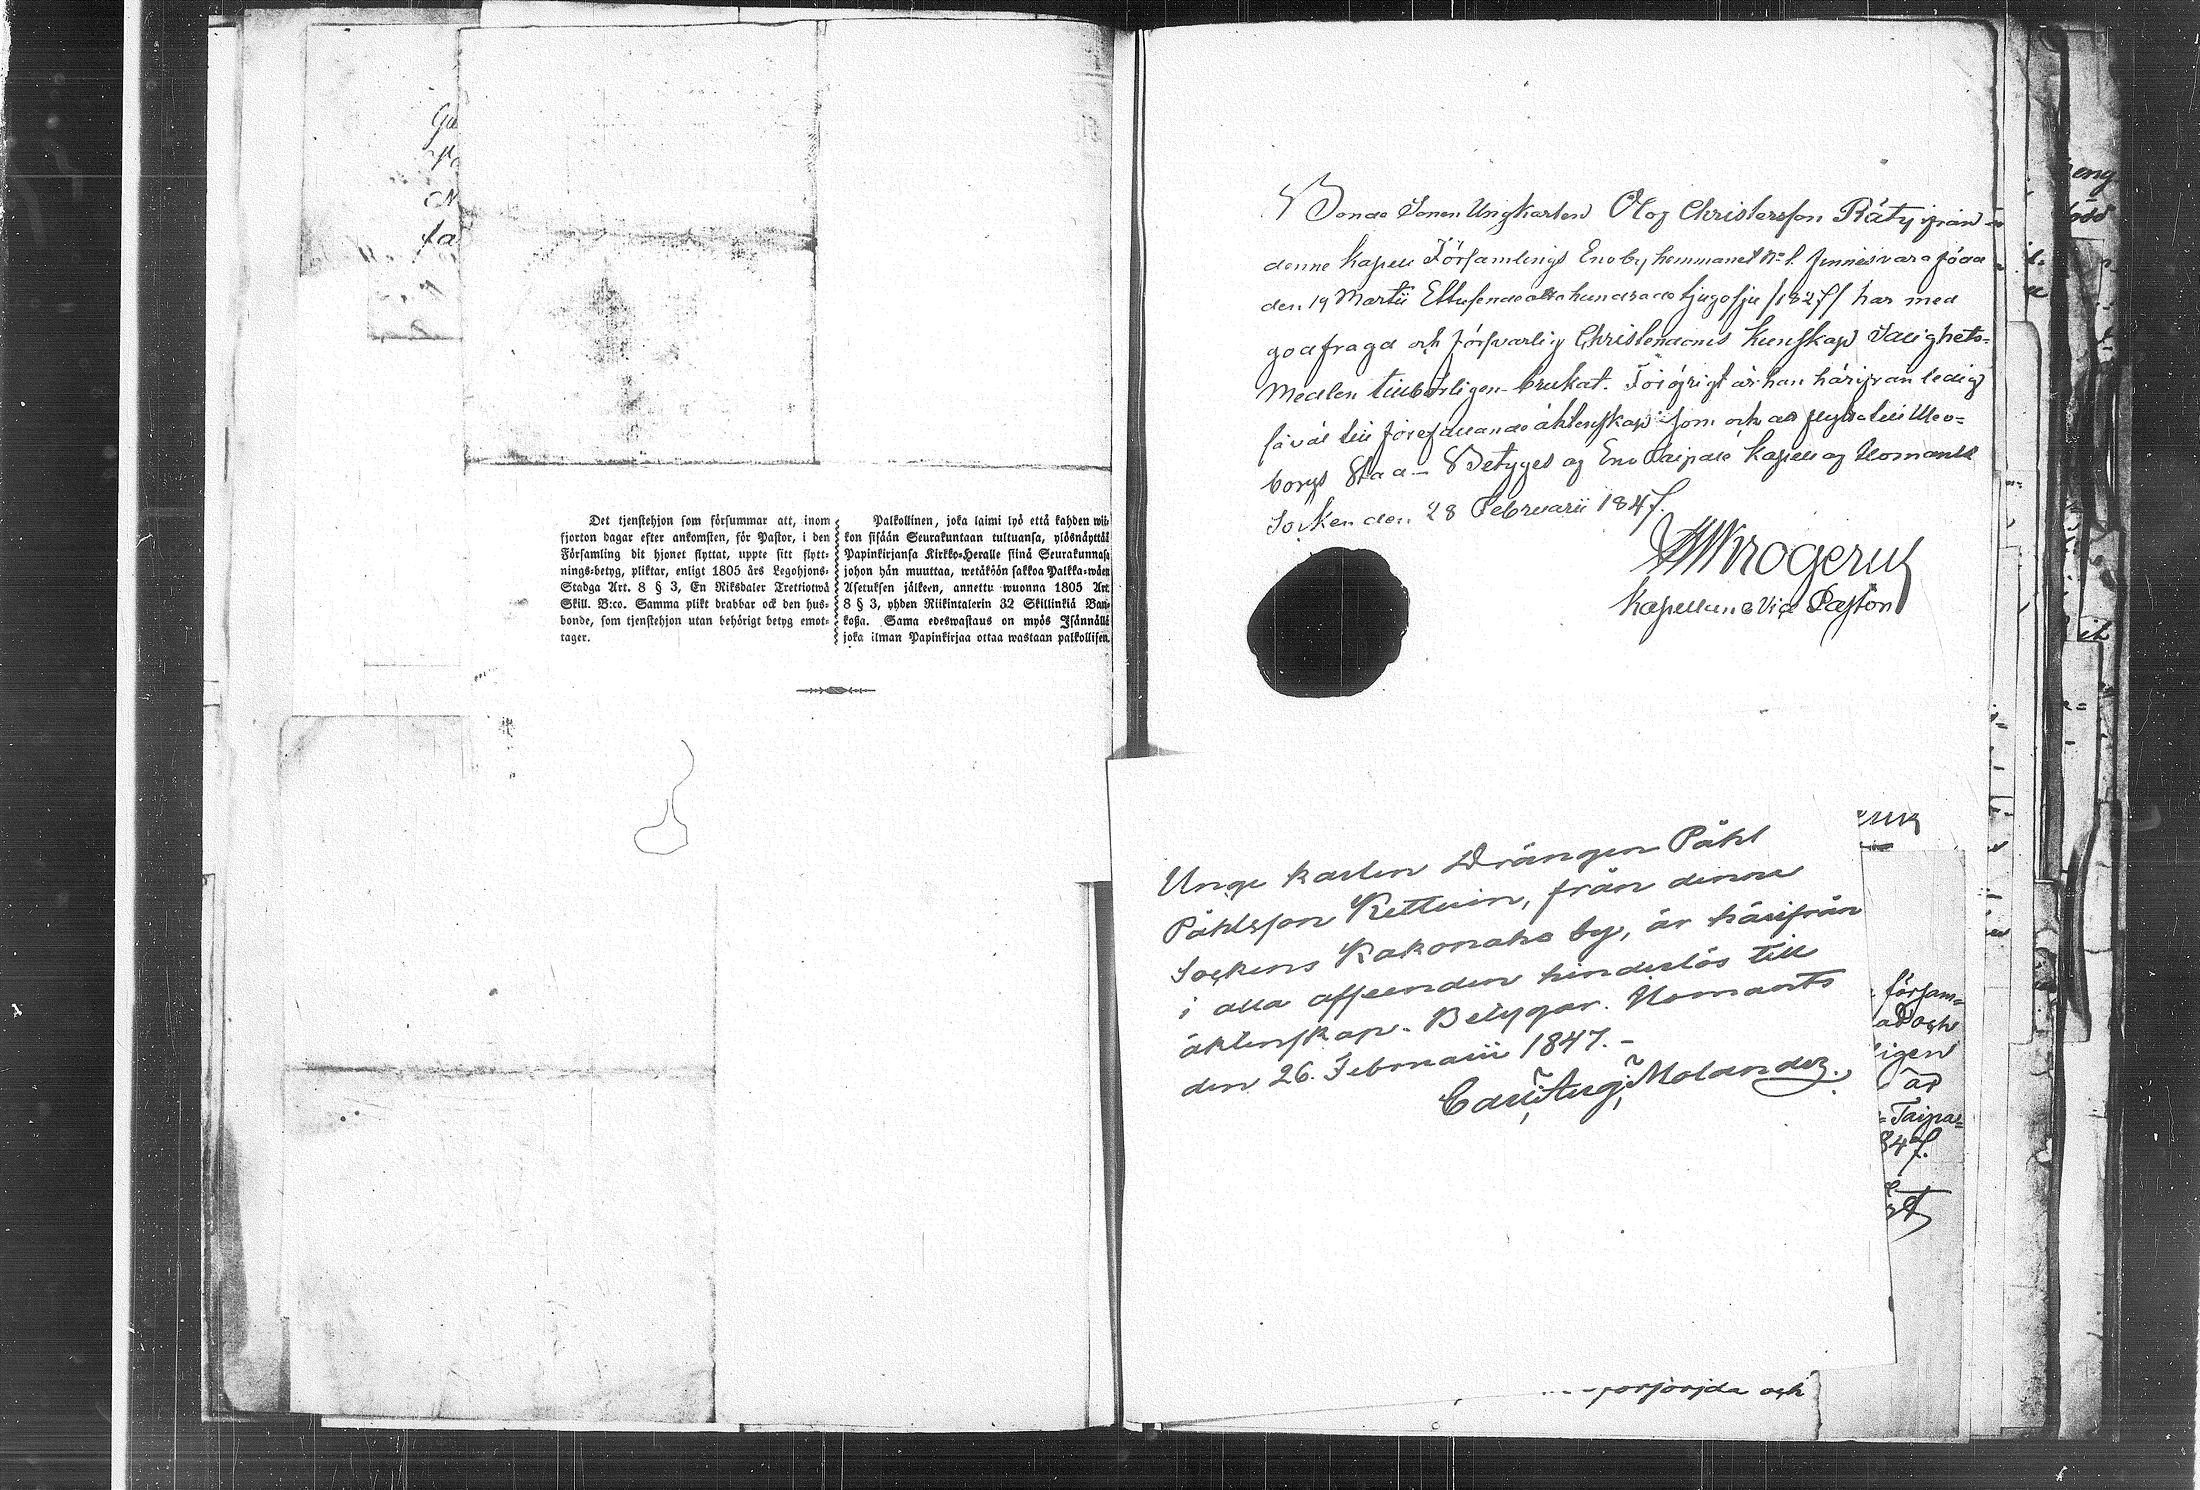 Det tjenstehjon som försummar att, inom
fjorton dagar efter ankomsten, för Pastor, i den
Församling dit hjonet flyttat, uppte sitt flytt-
nings-betyg, pliktar, enligt 1805 års Legohjons-
Stadga Art. 8 § 3, En Riksdaler Trettiotwå
Skill. B:co. Samma plikt drabbar ock den hus-
bonde, som tjenstehjon utan behörigt betyg emot-
tager.
Palkollinen, joka laimi lyö että kahden wii-
kon sisään Seurakuntaan tultuansa, ylösnäyttää
Papinkirjansa Kirkko-Heralle siinä Seurakunnasa
johon hän muuttaa, wetäköön sakkoa Palkka-wäen
Asetuksen jälkeen, annettu wuonna 1805 Art.
8 § 3, yhden Riikintalerin 32 Skillinkiä Ban-
kosa. Sama edeswastaus on myös Isännällä
joka ilman Papinkirjaa ottaa wastaan palkollisen.
Bonde Sonen Ungkarlen Olof Christersson Räty ifrån
denne Kapell Församlings Eno by hemmanet No 1. finnes vara född
den 19 Martii Ettusende otta hundrade tjugosju /1827/ har med
god fragd och försvarlig Christendoms Kunskap Salighets-
Medlen tillbörligen brukat. För öfrigt är han härifrån ledig
såväl till förefallande äktenskap som och att flytta till Uleo-
borgs Stad - Betyges af Eno Taipale Kapell af Ilomants
Socken den 28 Februarii 1847.
Krogerus
Kapellan & Vice Pastor
Unge karlen Drängen Påhl
Påhlsson Kettuin, från denna
Sockens Kakonaho by, är härifrån
i alla afseenden hinderlös till
äktenskap. Betygar. Ilomants
den 26. Februarii 1847.-
Carl Aug: Molander.
försam-
och
ligen
är
-Taipa-
847.
och